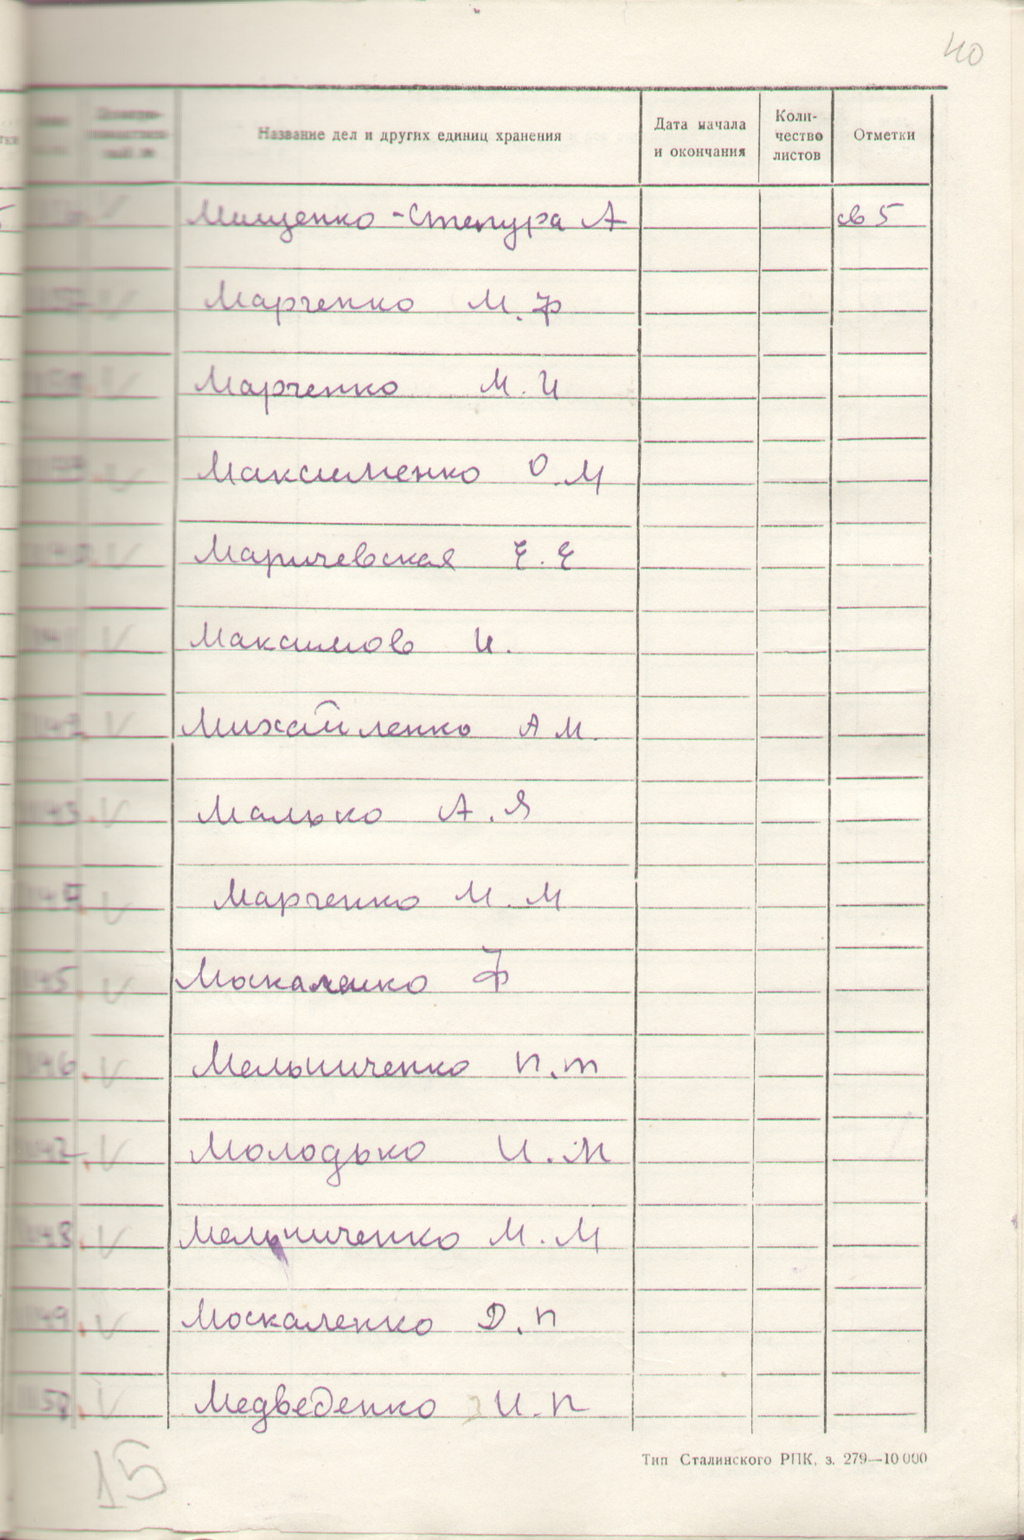 40
Название дел и других единиц хранения
Дата начала и окончания
Количество листов
Отметки
Мищенко-Степура А св 5
Марченко М.Ф
Марченко М.И
Максименко О.М
Маричевская Е.Е
141 Максимов И.
142 Михайленко А М.
143 Малько А.Я
Марченко М.М
145 Москаленко Ф
146 Мельниченко П.Т
147 Молодько И.М
148 Мельниченко М.М
149 Москаленко Д.П
150 Медведенко И.П
15
Тип Сталинского РПК, з. 279—10 000